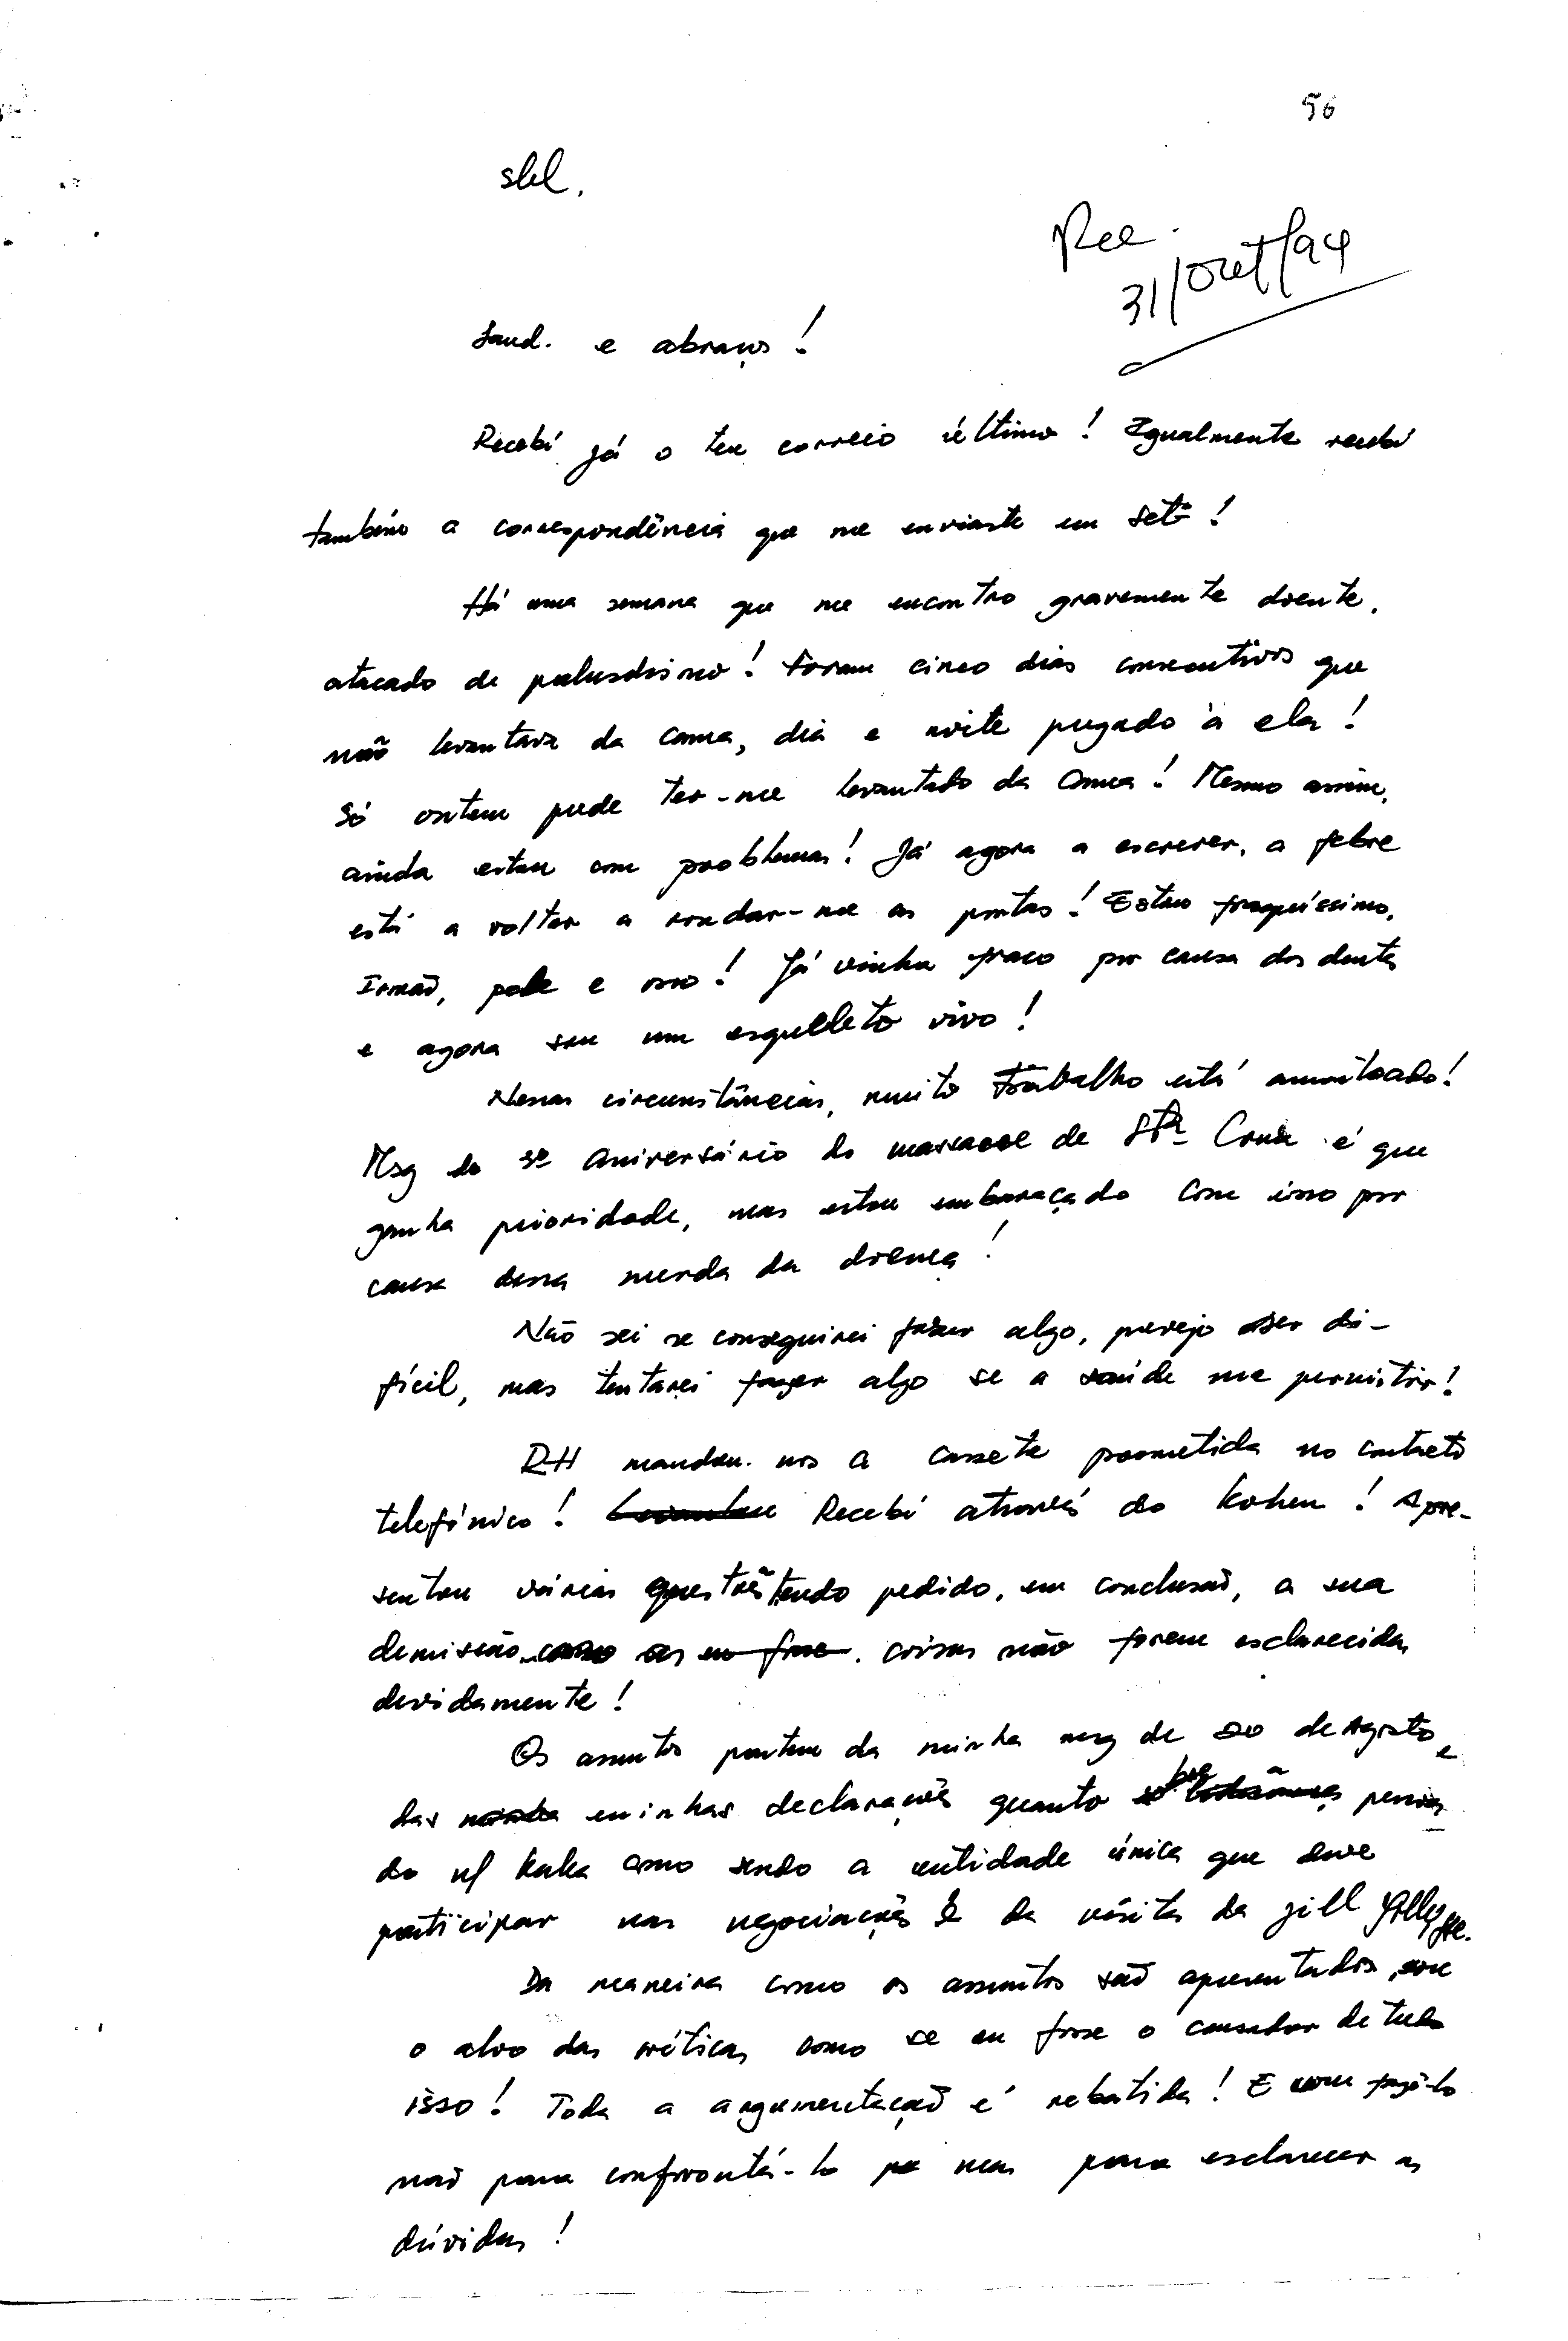 56
slel.
Rec.
31/out/94
Saud. e abraços!
Recebí já o teu correio último! Igualmente recebí
também a correspondência que me enviaste em setº!
Há uma semana que me encontro gravemente doente,
atacado de paludismo! Foram cinco dias consecutivos que
não levantava da cama, dia e noite pegado à ela!
Só ontem pude ter-me levantado da cama! Mesmo assim,
ainda estou com problemas! Já agora a escrever, a febre
está a voltar a rondar-me as portas! Estou fraquíssimo,
Irmão, pele e osso! Já vinha fraco por causa dos dentes
e agora sou um esqueleto vivo!
Nessas circunstâncias, muito trabalho está amontoado!
Msg do 3º aniversário do massacre de Stª Cruz é que
ganha prioridade, mas estou embaraçado com isso por
causa dessa merda da doença!
Não sei se conseguirei fazer algo, prevejo ser di-
fícil, mas tentarei fazer algo se a saúde me permitir!
RH mandou-nos a cassete prometida no contacto
telefónico! Recebí através do Kohen! Apre-
sentou várias questões tendo pedido, em conclusão, a sua
demissão caso as coisas não forem esclarecidas
devidamente!
Os assuntos partem da minha msg de 20 de Agosto e
das minhas declarações quanto sobre
do Kaka como sendo a entidade única que deve
participar nas negociações e da visita da Jill Jolliffe.
Da maneira como os assuntos são apresentados, sou
o alvo das críticas como se eu fosse o causador de tudo
isso! Toda a argumentação é rebatida! E vou fazê-lo
não para confrontá-lo mas para esclarecer as
dúvidas!